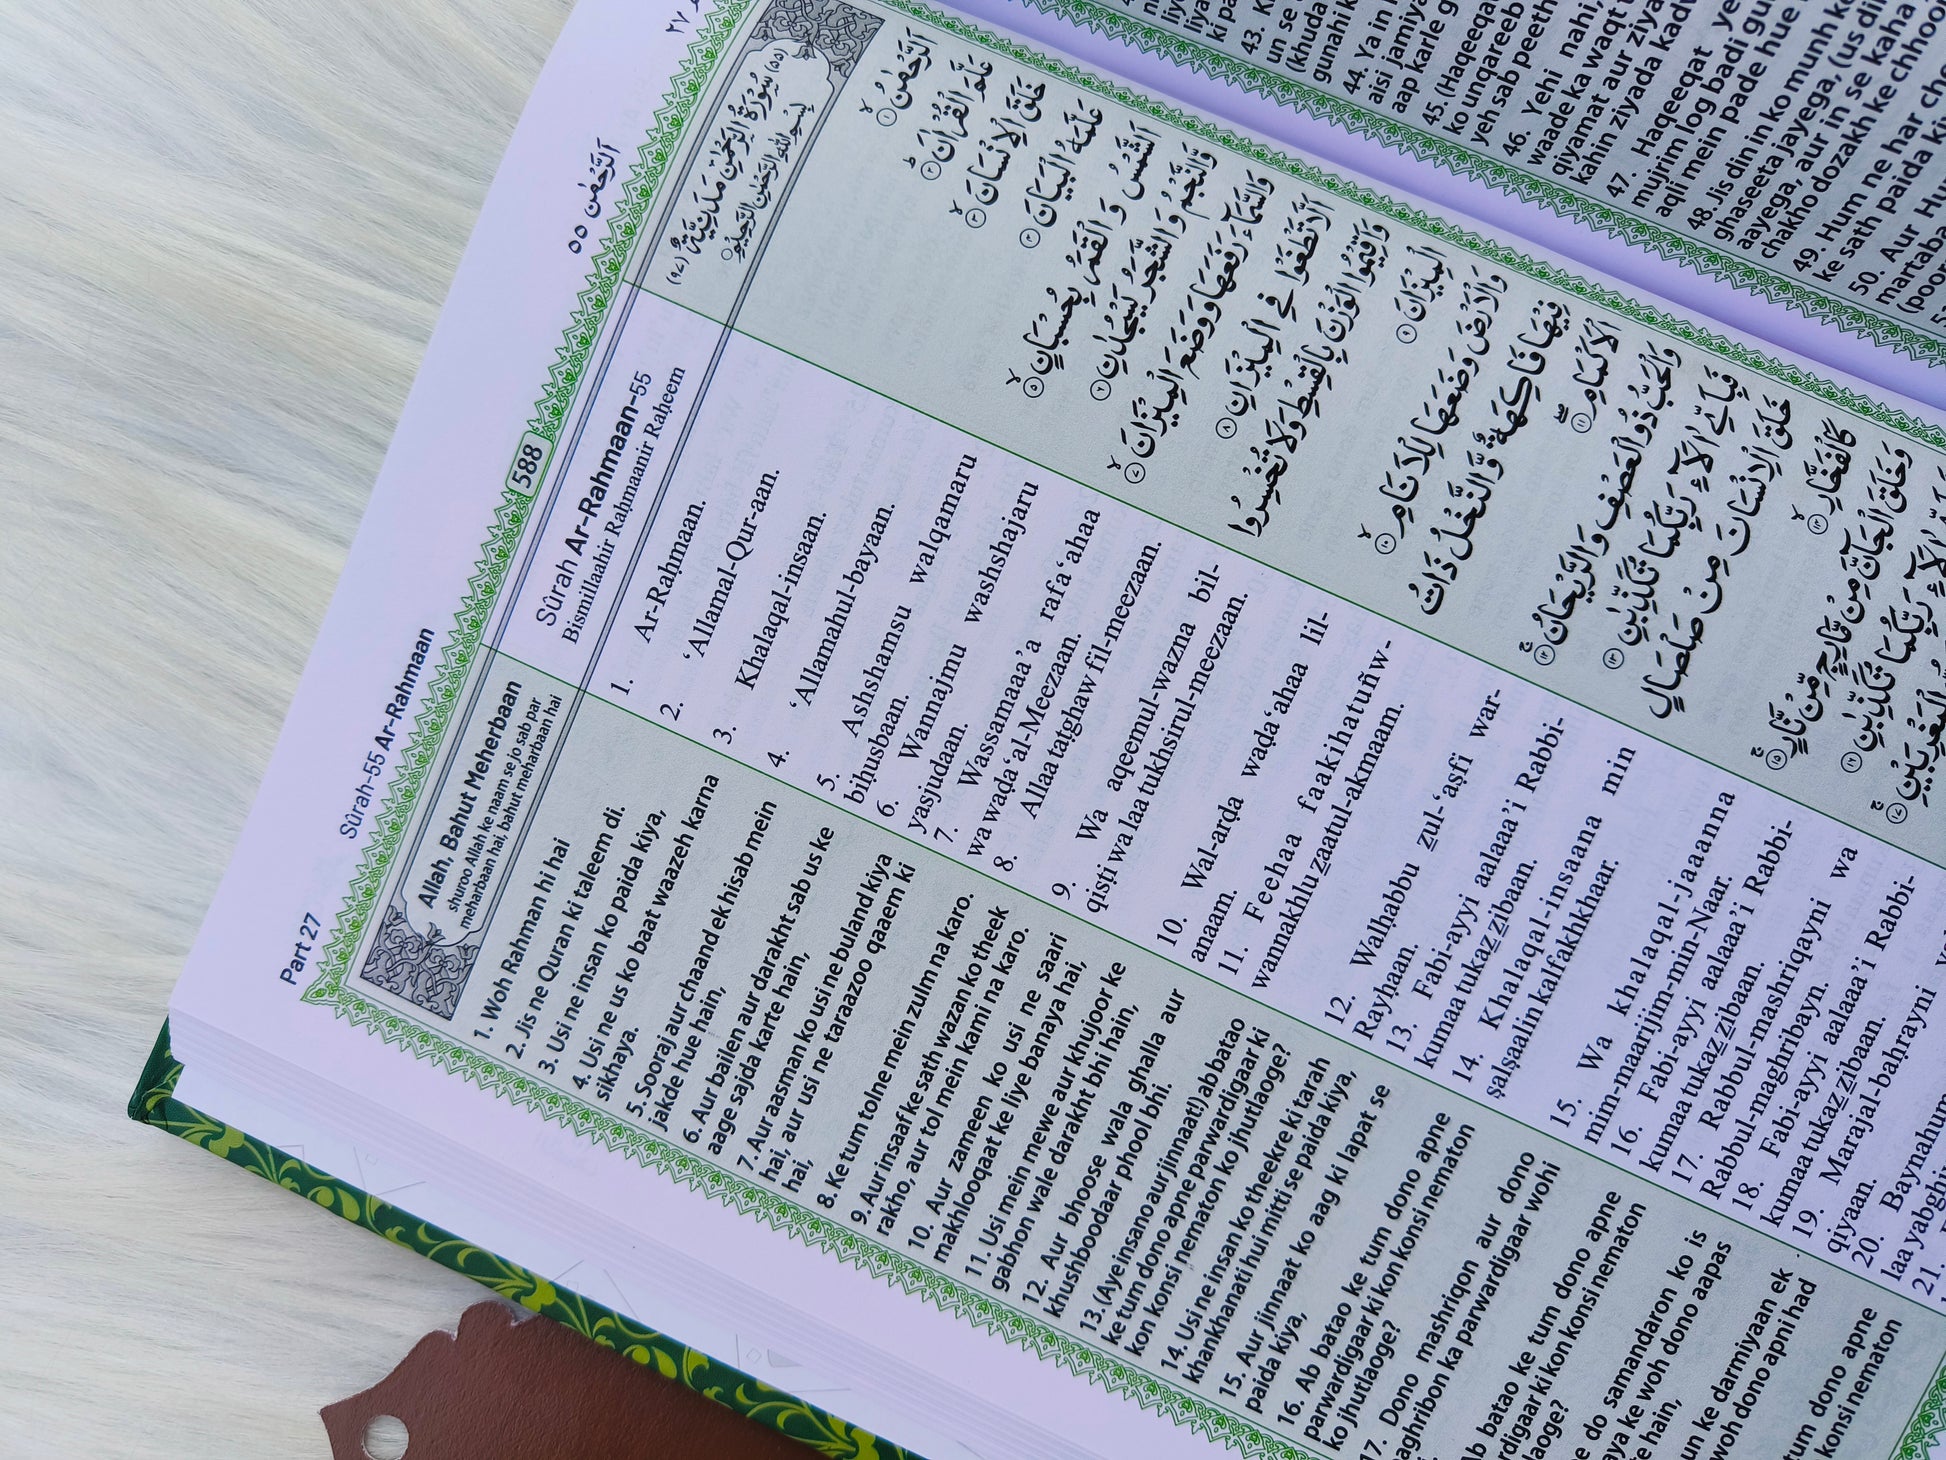 Part 27
Sûrah-55 Ar-Rahmaan
اَلرَّحْمٰن ٥٥
588
Allah, Bahut Meherbaan
shuroo Allah ke naam se jo sab par
meharbaan hai, bahut meharbaan hai
1. Woh Rahman hi hai
2. Jis ne Quran ki taleem di.
3. Usi ne insan ko paida kiya,
4. Usi ne us ko baat waazeh karna
sikhaya.
5. Sooraj aur chaand ek hisab mein
jakde hue hain,
6. Aur bailen aur darakht sab us ke
aage sajda karte hain,
7. Aur aasman ko usi ne buland kiya
hai, aur usi ne taraazoo qaaem ki
hai,
8. Ke tum tolne mein zulm na karo.
9. Aur insaaf ke sath wazan ko theek
rakho, aur tol mein kami na karo.
10. Aur zameen ko usi ne saari
makhlooqaat ke liye banaya hai,
11. Usi mein mewe aur khujoor ke
gabhon wale darakht bhi hain,
12. Aur bhoose wala ghalla aur
khushboodaar phool bhi.
13. (Aye insano aur jinnaat!) ab batao
ke tum dono apne parwardigaar ki
kon konsi nematon ko jhutlaoge?
14. Usi ne insan ko theekre ki tarah
khankhanati hui mitti se paida kiya,
15. Aur jinnaat ko aag ki lapat se
paida kiya,
16. Ab batao ke tum dono apne
parwardigaar ki kon konsi nematon
ko jhutlaoge?
17. Dono mashriqon aur dono
maghribon ka parwardigaar wohi
Ab batao ke tum dono apne
rdigaar ki kon konsi nematon
laoge?
e do samandaron ko is
aya ke woh dono aapas
te hain,
un ke darmiyaan ek
woh dono apni had
tum dono apne
konsi nematon
Sûrah Ar-Rahmaan-55
Bismillaahir Raḥmaanir Raḥeem
1. Ar-Raḥmaan.
2. ‘Allamal-Qur-aan.
3. Khalaqal-insaan.
4. ‘Allamahul-bayaan.
5. Ashshamsu walqamaru
biḥusbaan.
6. Wannajmu washshajaru
yasjudaan.
7. Wassamaaa’a rafa‘ahaa
wa waḍa‘al-Meezaan.
8. Allaa taṭghaw fil-meezaan.
9. Wa aqeemul-wazna bil-
qisṭi wa laa tukhsirul-meezaan.
10. Wal-arḍa waḍa‘ahaa lil-
anaam.
11. Feehaa faakihatuñw-
wannakhlu zaatul-akmaam.
12. Walḥabbu zul-‘aṣfi war-
Rayḥaan.
13. Fabi-ayyi aalaaa’i Rabbi-
kumaa tukazzibaan.
14. Khalaqal-insaana min
ṣalṣaalin kalfakhkhaar.
15. Wa khalaqal-jaaanna
mim-maarijim-min-Naar.
16. Fabi-ayyi aalaaa’i Rabbi-
kumaa tukazzibaan.
17. Rabbul-mashriqayni wa
Rabbul-maghribayn.
18. Fabi-ayyi aalaaa’i Rabbi-
kumaa tukazzibaan.
19. Marajal-baḥrayni yal
qiyaan.
20. Baynahum
laa yabghi
21.
(٥٥) سُوْرَةُ الرَّحْمٰنِ مَدَنِيَّةٌ (٩٧)
بِسْمِ اللّٰهِ الرَّحْمٰنِ الرَّحِيْمِ
اَلرَّحْمٰنُ ١
عَلَّمَ الْقُرْاٰنَ ٢
خَلَقَ الْاِنْسَانَ ٣
عَلَّمَهُ الْبَيَانَ ٤
اَلشَّمْسُ وَ الْقَمَرُ بِحُسْبَانٍ ٥
وَّالنَّجْمُ وَ الشَّجَرُ يَسْجُدٰنِ ٦
وَالسَّمَآءَ رَفَعَهَا وَوَضَعَ الْمِيْزَانَ ٧
اَلَّا تَطْغَوْا فِي الْمِيْزَانِ ٨
وَاَقِيْمُوا الْوَزْنَ بِالْقِسْطِ وَلَا تُخْسِرُوا
الْمِيْزَانَ ٩
وَالْاَرْضَ وَضَعَهَا لِلْاَنَامِ ١٠
فِيْهَا فَاكِهَةٌ وَّالنَّخْلُ ذَاتُ
الْاَكْمَامِ ١١
وَالْحَبُّ ذُو الْعَصْفِ وَالرَّيْحَانُ ١٢
فَبِاَيِّ اٰلَآءِ رَبِّكُمَا تُكَذِّبٰنِ ١٣
خَلَقَ الْاِنْسَانَ مِنْ صَلْصَالٍ
كَالْفَخَّارِ ١٤
وَخَلَقَ الْجَآنَّ مِنْ مَّارِجٍ مِّنْ نَّارٍ ١٥
فَبِاَيِّ اٰلَآءِ رَبِّكُمَا تُكَذِّبٰنِ ١٦
الْمَغْرِبَيْنِ ١٧
43.
un se
(khuda
gunahi k
44. Ya in
aisi jamiya
aap karle g
45. (Haqeeqat
ko unqareeb
yeh sab peeth
46. Yehi nahi,
waade ka waqt
qiyamat aur ziya
kahin ziyada kadw
47. Haqeeqat ye
mujrim log badi gu
aqli mein pade hue
48. Jis din in ko munh k
ghaseeta jayega, (us din
aayega, aur in se kaha
chakho dozakh ke chhoo
49. Hum ne har che
ke sath paida k
50. Aur Hu
martaba
(poor